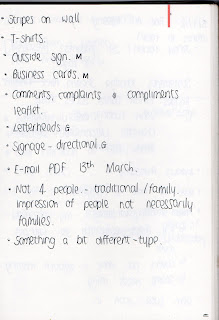 · Stripes on wall
· T-shirts.
· Outside sign. M
· Business cards. M
· Comments, complaints & compliments
leaflet.
· Letterheads G
· Signage - directional. G
· E-mail PDF 13th March.
· Not 4 people. - traditional / family.
impression of people not necessarily
families.
· Something a bit different - type.